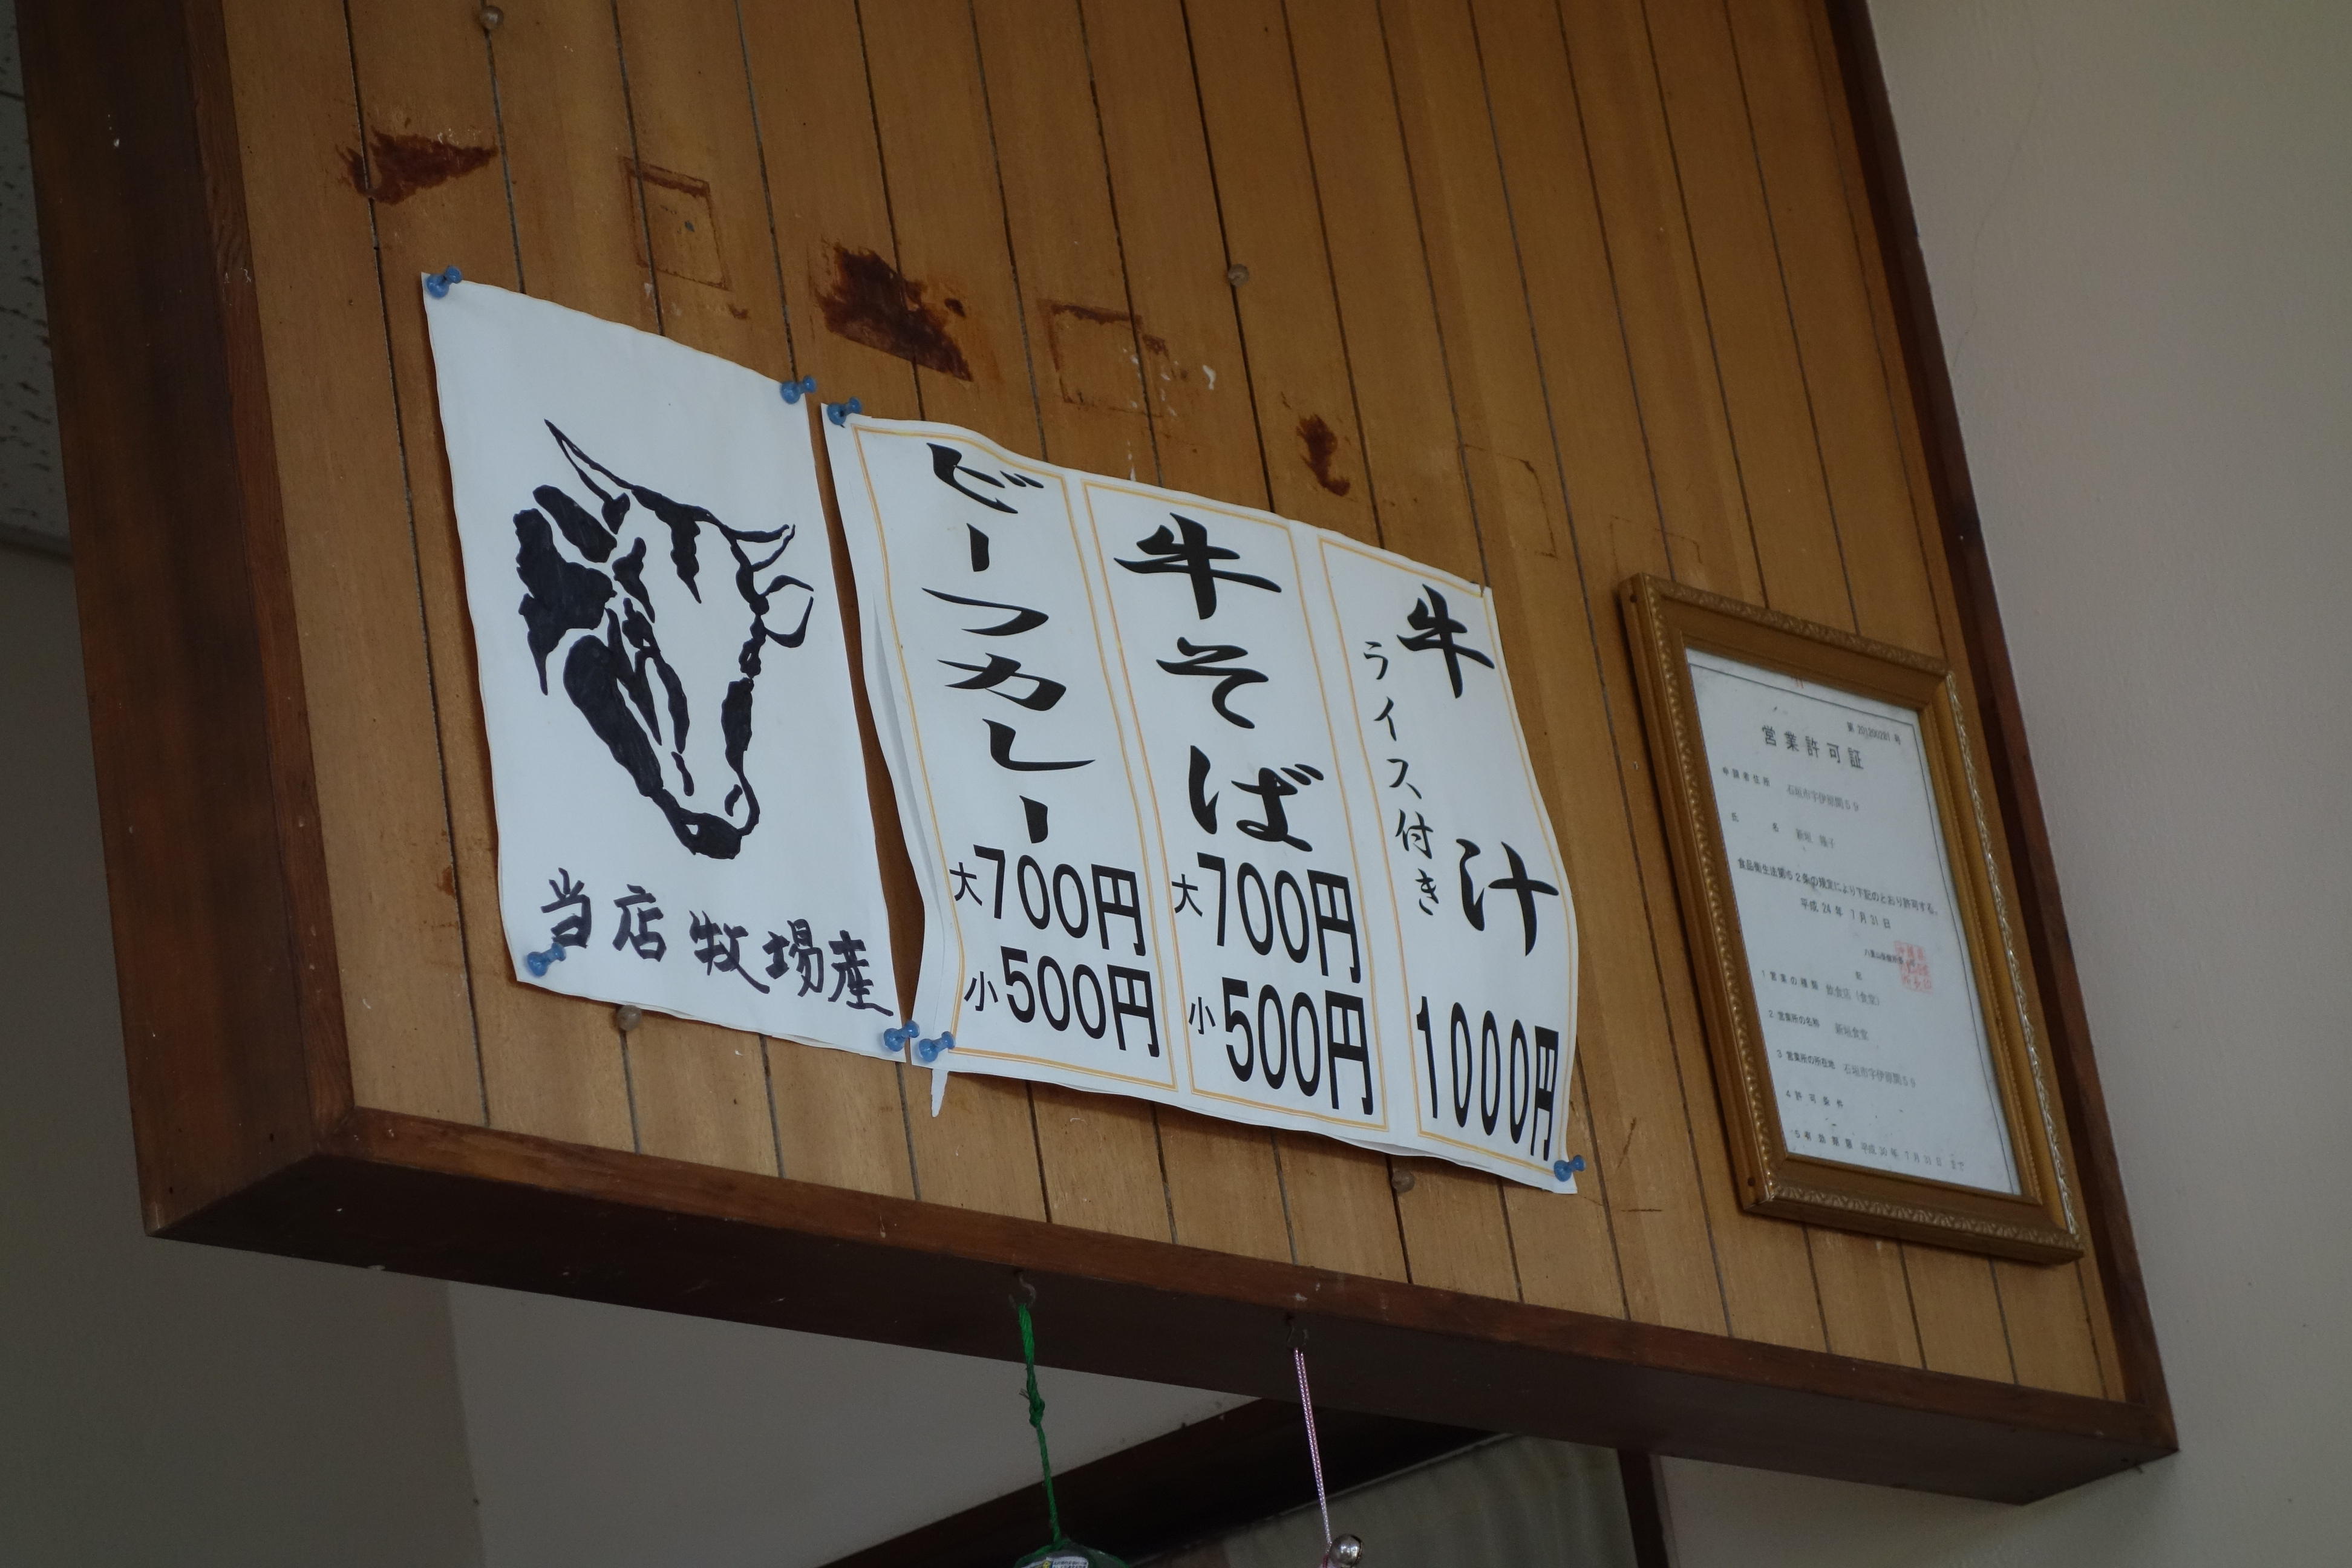 当店牧場産
牛汁
ライス付き
1000円
牛そば
大700円
小500円
ビーフカレー
大700円
小500円
営業許可証
申請者住所 石垣市字伊原間59
氏名 新垣
食品衛生法第52条の規定により下記のとおり許可する。
平成24年7月31日
記
1 営業の種類 飲食店（食堂）
2 営業所の名称 新垣食堂
3 営業所の所在地 石垣市字伊原間59
4 許可条件
5 有効期限 平成30年7月31日まで